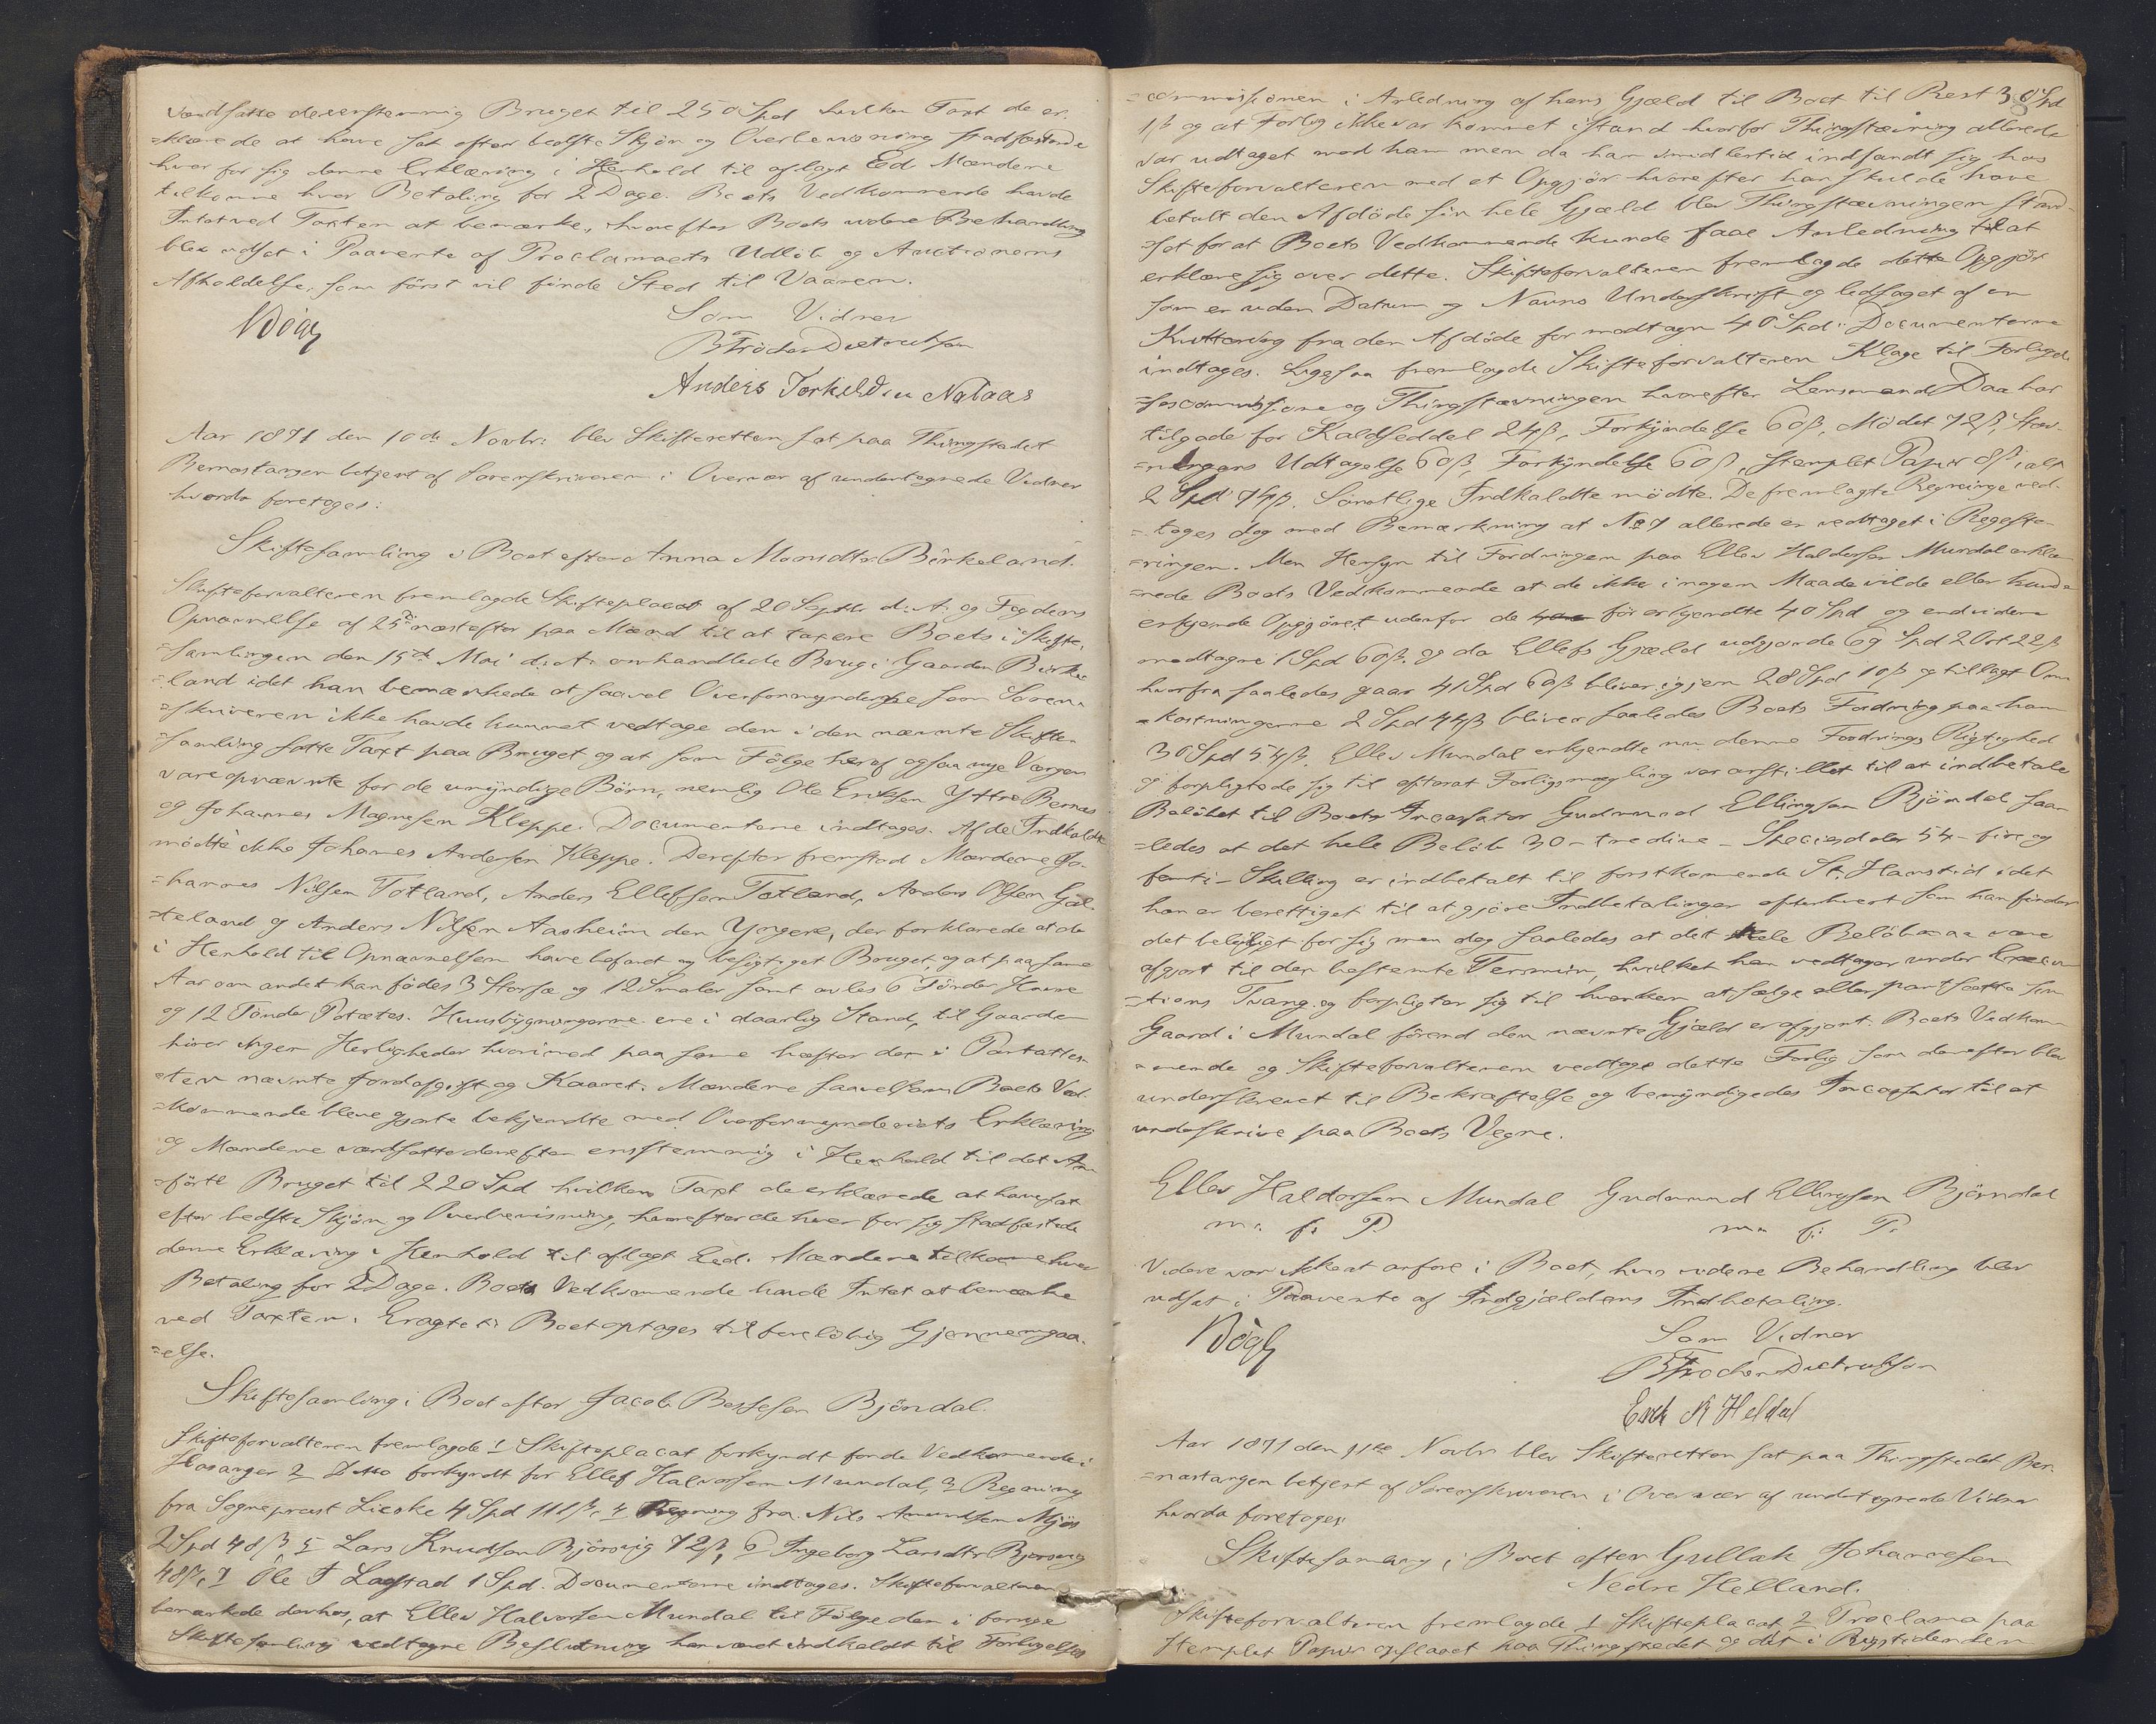 værdsatte de eenstemmig Bruget til 250 Spd hvilken Taxt de er-
=klærede at have sat efter bedste Skjøn og Overbeviisning stadfæstende
hver for sig denne Erklæring i Henhold til aflagt Eed. Mændene
tilkomme hver Betaling for 2 Dage. Boets Vedkommende havde
Intet ved Taxten at bemærke, hvorefter Boets videre Behandling
blev udsat i Paavente af Proclamaets Udløb og Auctionens
Afholdelse, som først vil finde Sted til Vaaren.
Som Vidner
Anders Torkildsen Nataas
Aar 1871 den 10de Novbr: blev Skifteretten sat paa Thingstedet
Bernæstangen betjent af Sorenskriveren i Overvær af undertegnede Vidner
hvorda foretoges:
Skiftesamling i Boet efter Anna Monsdtr. Birkeland.
Skifteforvalteren fremlagde Skifteplacat af 20 Septbr d: A: og Fogdens
Opnævnelse af 25de næstefter paa Mænd til at taxere Boets i Skifte-
=samlingen den 15de Mai d: A: omhandlede Brug i Gaarden Birke
=land idet han bemærkede at saavel Overformynderne som Soren-
=skriveren ikke havde kunnet vedtage den i den nævnte Skifte-
samling satte Taxt paa Bruget og at som Følge heraf ogsaa nye Værger
vare opnævnte for de umyndige Børn, nemlig Ole Eriksen Yttre Bernæs
og Johannes Magnesen Kleppe. Documenterne indtages. Af de Indkaldte
mødte ikke Johannes Andersen Kleppe. Derefter fremstod Mændene Jo-
=hannes Nilsen Totland, Anders Ellefsen Totland, Anders Olsen Gjel-
=teland og Anders Nilsen Aasheim den Yngere, der forklarede at de
i Henhold til Opnævnelsen have befaret og besigtiget Bruget, og at paa samme
Aar om andet kan fødes 3 Storfæ og 12 Smaler samt avles 6 Tønder Havre
og 12 Tønder Potætes. Huusbygningerne ere i daarlig Stand, til Gaarden
hører ingen Herligheder hvorimod paa samme hæfter den i Partatte-
=sten nævnte Jordafgift og Kaaret. Mændene saavelsom Boets Ved-
=kommende bleve gjorte bekjendte med Overformynderiets Erklæring
og Mændene værdsatte derefter enstemmig i Henhold til det An-
=førte Bruget til 220 Spd hvilken Taxt de erklærede at have sat
efter bedste Skjøn og Overbeviisning, hvorefter de hver for sig stadfæstede
denne Erklæring i Henhold til aflagt Eed. Mændene tilkomme hver
Betaling for 2 Dage. Boets Vedkommende havde Intet at bemærke
ved Taxten. Eragtet: Boet optages til foreløbig Gjennemgaa-
=else.
Skiftesamling i Boet efter Jacob Bessesen Bjøndal.
Skifteforvalteren fremlagde 1 Skifteplacat forkyndt for de Vedkommende i
Hosanger 2 Ditto forkyndt for Ellef Halvorsen Mundal, 3 Regning
fra Sogneprest Lieske 4 Spd 118 ß, 4 Regning fra Nils Amundsen Mjøs
2 Spd 48 ß, 5 Lars Knudsen Bjørsvig 72 ß, 6 Ingeborg Larsdtr Bjørsvig
48 ß, 7 Ole T Lagstad 1 Spd. Documenterne indtages. Skifteforvalteren
bemærkede derhos, at Ellev Halvorsen Mundal til Følge den i forrige
Skiftesamling vedtagne Beslutning har været indkaldt til Forligelses
=commissionen i Anledning af hans Gjæld til Boet til Rest 38 Spd
1 ß og at Forlig ikke var kommet istand hvorfor Thingstævning allerede
var udtaget mod ham men da han imidlertid indfandt sig hos
Skifteforvalteren med et Opgjør hvorefter han skulde have
betalt den Afdøde sin hele Gjæld blev Thingstævningen stand-
=sat for at Boets Vedkommende kunde faae Anledning til at
erklære sig over dette. Skifteforvalteren fremlagde dette Opgjør
som er uden Datum og Navns Underskrift og ledsaget af en
Kvittering fra den Afdøde for modtagne 40 Spd: Documenterne
indtages. Ligesaa fremlagde Skifteforvalteren Klage til Forligel-
=sescommissione og Thingstævningen hvorefter Lensmand Daa har
tilgode for Kaldseddel 24 ß, Forkyndelse 60 ß, Mødet 72 ß, Stæv-
=ningens Udtagelse 60 ß, Forkyndelse 60 ß, stemplet Papir 8 ß ialt
2 Spd 44 ß. Samtlige Indkaldte mødte. De fremlagte Regninge ved-
=toges dog med Bemærkning at No 7 allerede er vedtaget i Registe-
=ringen. Men Hensyn til Fordringen paa Ellev Haldorsen Mundal erklæ-
=rede Boets Vedkommende at de ikke i nogen Maade vilde eller kunde
erkjende Opgjøret udenfor de før erkjendte 40 Spd og endvidere
modtagne 1 Spd 60 ß. og da Ellefs Gjæld udgjorde 69 Spd 2 Ort 22 ß
hvorfra saaledes gaar 41 Spd 60 ß bliver igjen 28 Spd 10 ß og tillagt Om-
=kostningerne 2 Spd 44 ß bliver saaledes Boets Fordring paa ham
30 Spd 54 ß. Ellev Mundal erkjendte nu denne Fordrings Rigtighed
og forpligtede sig til efterat Forligsmægling var anstillet til at indbetale
Beløbet til Boets Incassator Gudmund Ellingsen Bjøndal, saa-
=ledes at det hele Beløb 30 - tredive - Speciedaler 54 - fire og
femti - Skilling er indbetalt til førstkommende St. Hanstid idet
han er berettiget til at gjøre Indbetalinger efterhvert som han finder
det beleiligt for sig men dog saaledes at det hele Beløb maa være
afgjort til den bestemte Termin, hvilket han vedtager under Execu-
=tions Tvang og forpligter sig til hverken at sælge eller pantsætte sin
Gaard i Mundal førend den nævnte Gjæld er afgjort. Boets Vedkom-
=mende og Skifteforvalteren vedtage dette Forlig som derefter blev
underskrevet til Bekræftelse og bemyndigedes Incassator til at
underskrive paa Boets Vegne.
Ellev Haldorsen Mundal Gudmund Ellingsen Bjørndal
m: f: P. m: f: P.
Videre var ikke at anføre i Boet, hvis videre Behandling blev
udsat i Paavente af Indgjældens Indbetaling.
Som Vidner
Aar 1871 den 11te Novbr blev Skifteretten sat paa Thingstedet Ber-
=næstangen betjent af Sorenskriveren i Overvær af undertegnede Vidner
hvorda foretoges:
Skiftesamling i Boet efter Gullak Johannesen
Nedre Helland.
Skifteforvalteren fremlagde 1 Skifteplacat, 2 Proclama paa
stemplet Papir opslaaet paa Thingstedet og det i Rigstidenden